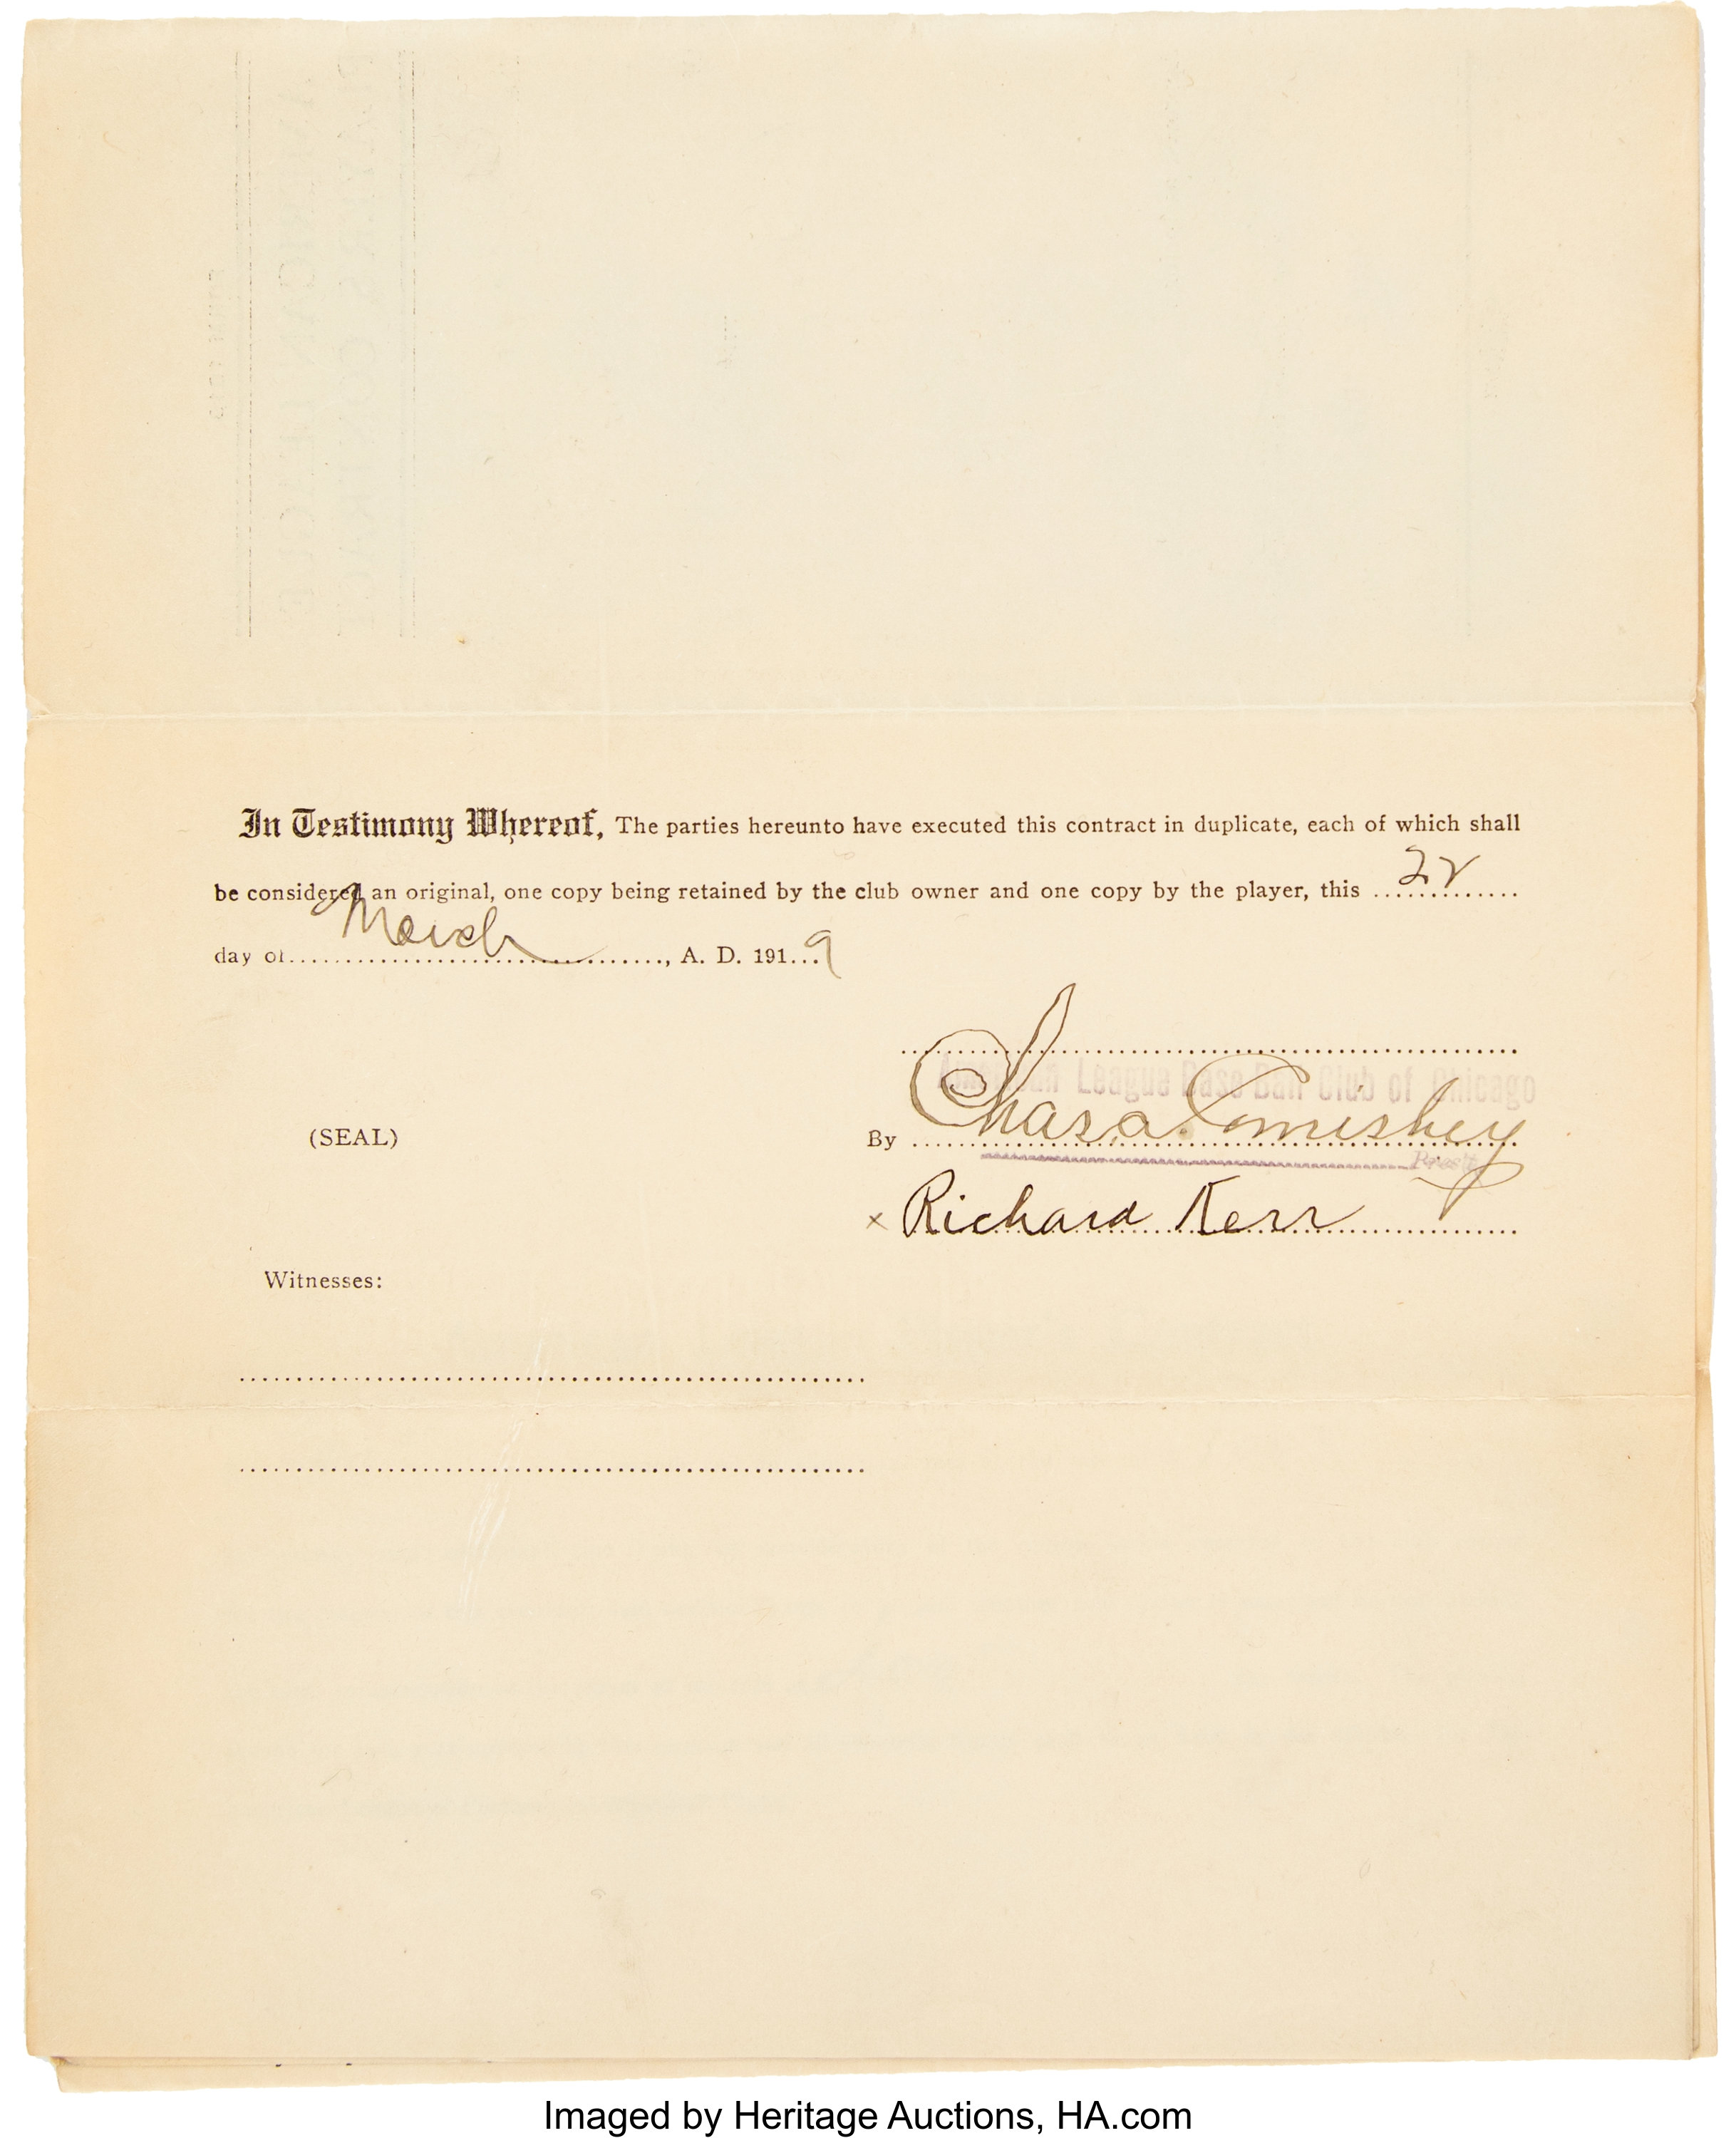 In Testimony Whereof, The parties hereunto have executed this contract in duplicate, each of which shall
be considered an original, one copy being retained by the club owner and one copy by the player, this 22
day of March, A. D. 1919
American League Base Ball Club of Chicago
(SEAL) By Chas A. Comiskey
Pres't
x Richard Kerr
Witnesses:
Imaged by Heritage Auctions, HA.com